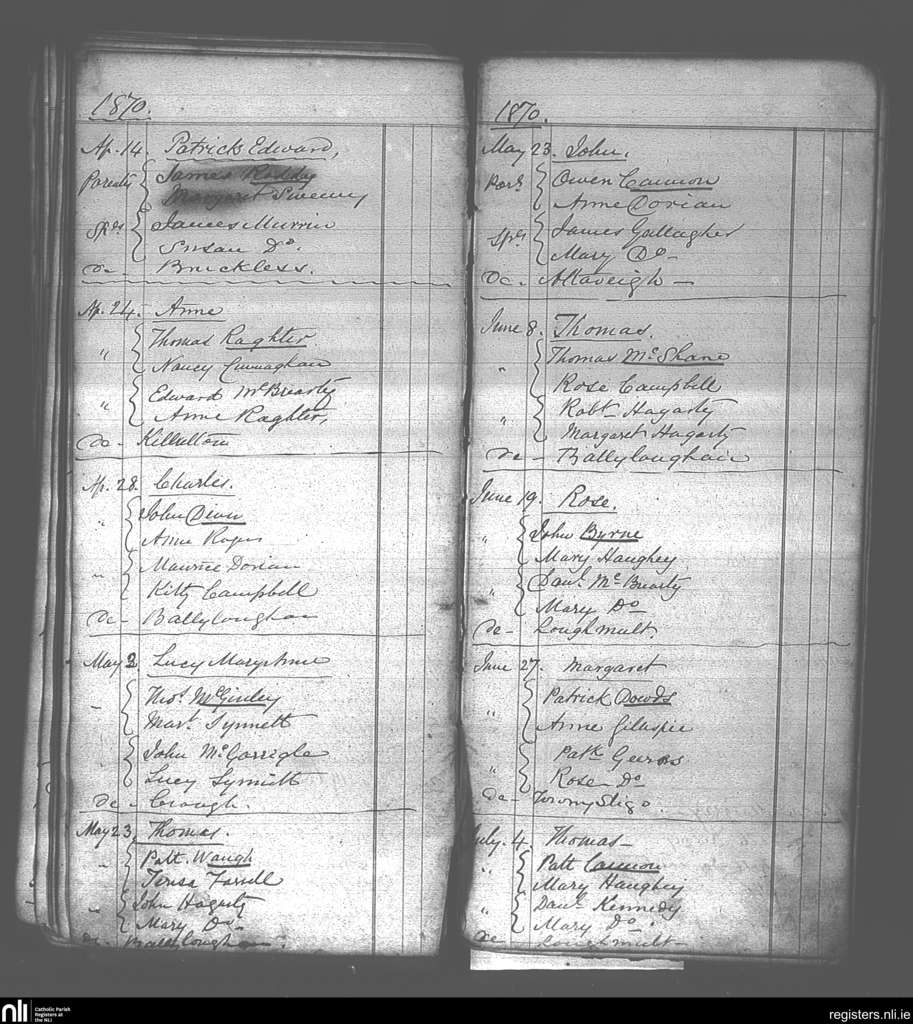 1870.
Ap. 14. Patrick Edward,
Parents James Roddy
Margaret Sweeny
Sprs James Murrin
Susan Do.
de - Bruckless.
Ap. 24. Anne
Thomas Raghter,
" Nancy Cunnaghan
Edward McBrearty
" Anne Raghter,
de - Killulton
Ap. 28. Charles.
John Devir
" Anne Roger
Maurice Dorian
" Kitty Campbell
de - Ballyloughan
May 2 Lucy Mary Anne
Thos. McGinley
" Mart. Synnett
John McGarrigle
Lucy Synnett
de - Crough.
May 23, Thomas.
" Patt. Waugh
Teresa Farrell
" John Hagarty
Mary Do -
de - Ballyloughan
1870.
May 23. John,
Pars Owen Cannon
Anne Dorian
Sprs James Gallagher
Mary Do -
de - Altaveigh -
June 8. Thomas.
Thomas McShane
" Rose Campbell
" Robt. Hagarty
Margaret Hagarty
de - Ballyloughain
June 19. Rose.
" John Byrne
Mary Haughey
" Danl. McBrearty
Mary Do
de - Loughmult.
June 27. Margaret
Patrick Dowds
" Anne Gillespie
Patk Geeros
" Rose Do
de - Tawny Sligo.
July. 4. Thomas -
" Patt Cannon
Mary Haughey
" Danl. Kennedy
Mary Do -
de Loughmult -
nli Catholic Parish
Registers at
the NLI
registers.nli.ie